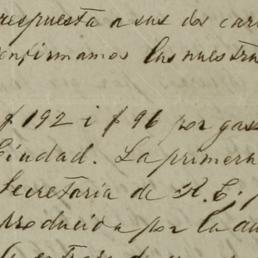 respuesta a sus dos car
onfirmamos las nuestra
$ 192 i $ 96 por gas
Ciudad. La primera
Secretaría de R. E.
producida por la au